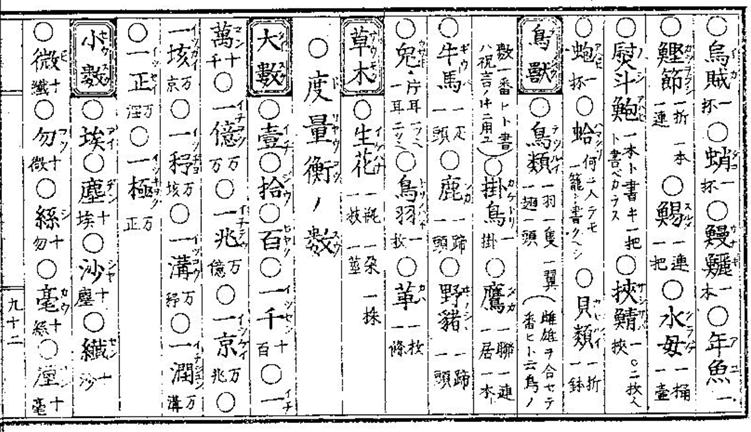 ○烏賊一杯○蛸一杯○鰻鱺一本○年魚一
○鰹節一折一本一連○鯣一連一把○水母一桶一壷
○熨斗鮑一本ト書キ一把ト書ベカラス○挾鯖一〇二枚ヲ一挾
○蚫一杯○蛤何ニ入テモ一籠ト書クヘシ○貝類一折一鉢
鳥獸○鳥類一羽一隻一翼一翅一頭(雌雄ヲ合セテ一番ヒト云鳥ノ
數一番ヒト書ハ祝言ノ斗ニ用ユ)○掛鳥一掛○鷹一聯一連一居一本
○牛馬一疋一頭○鹿一蹄一頭○野猪一蹄一頭
○兎片耳一ツヘ一耳二ツヘ○鳥羽一枚○革一枚一條
草木○生花一瓶一朶一株一枝一莖
○度量衡ノ數
大數○壹○拾○百○一千十百○一
萬十千○一億万万○一兆万億○一京万兆○
一垓万京○一秭万垓○一溝万秭○一澗万溝
○一正万澗○一極万正
小數○埃○塵十埃○沙十塵○纖十沙
○微十纖○勿十微○絲十勿○毫十絲○厘十毫
九十二